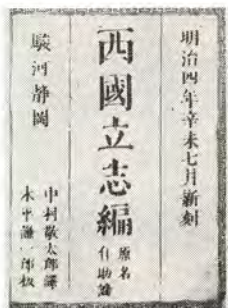 明治四年辛未七月新刻
西國立志編
原名
自助論
駿河靜岡
中村敬太郎譯
木平謙一郎板